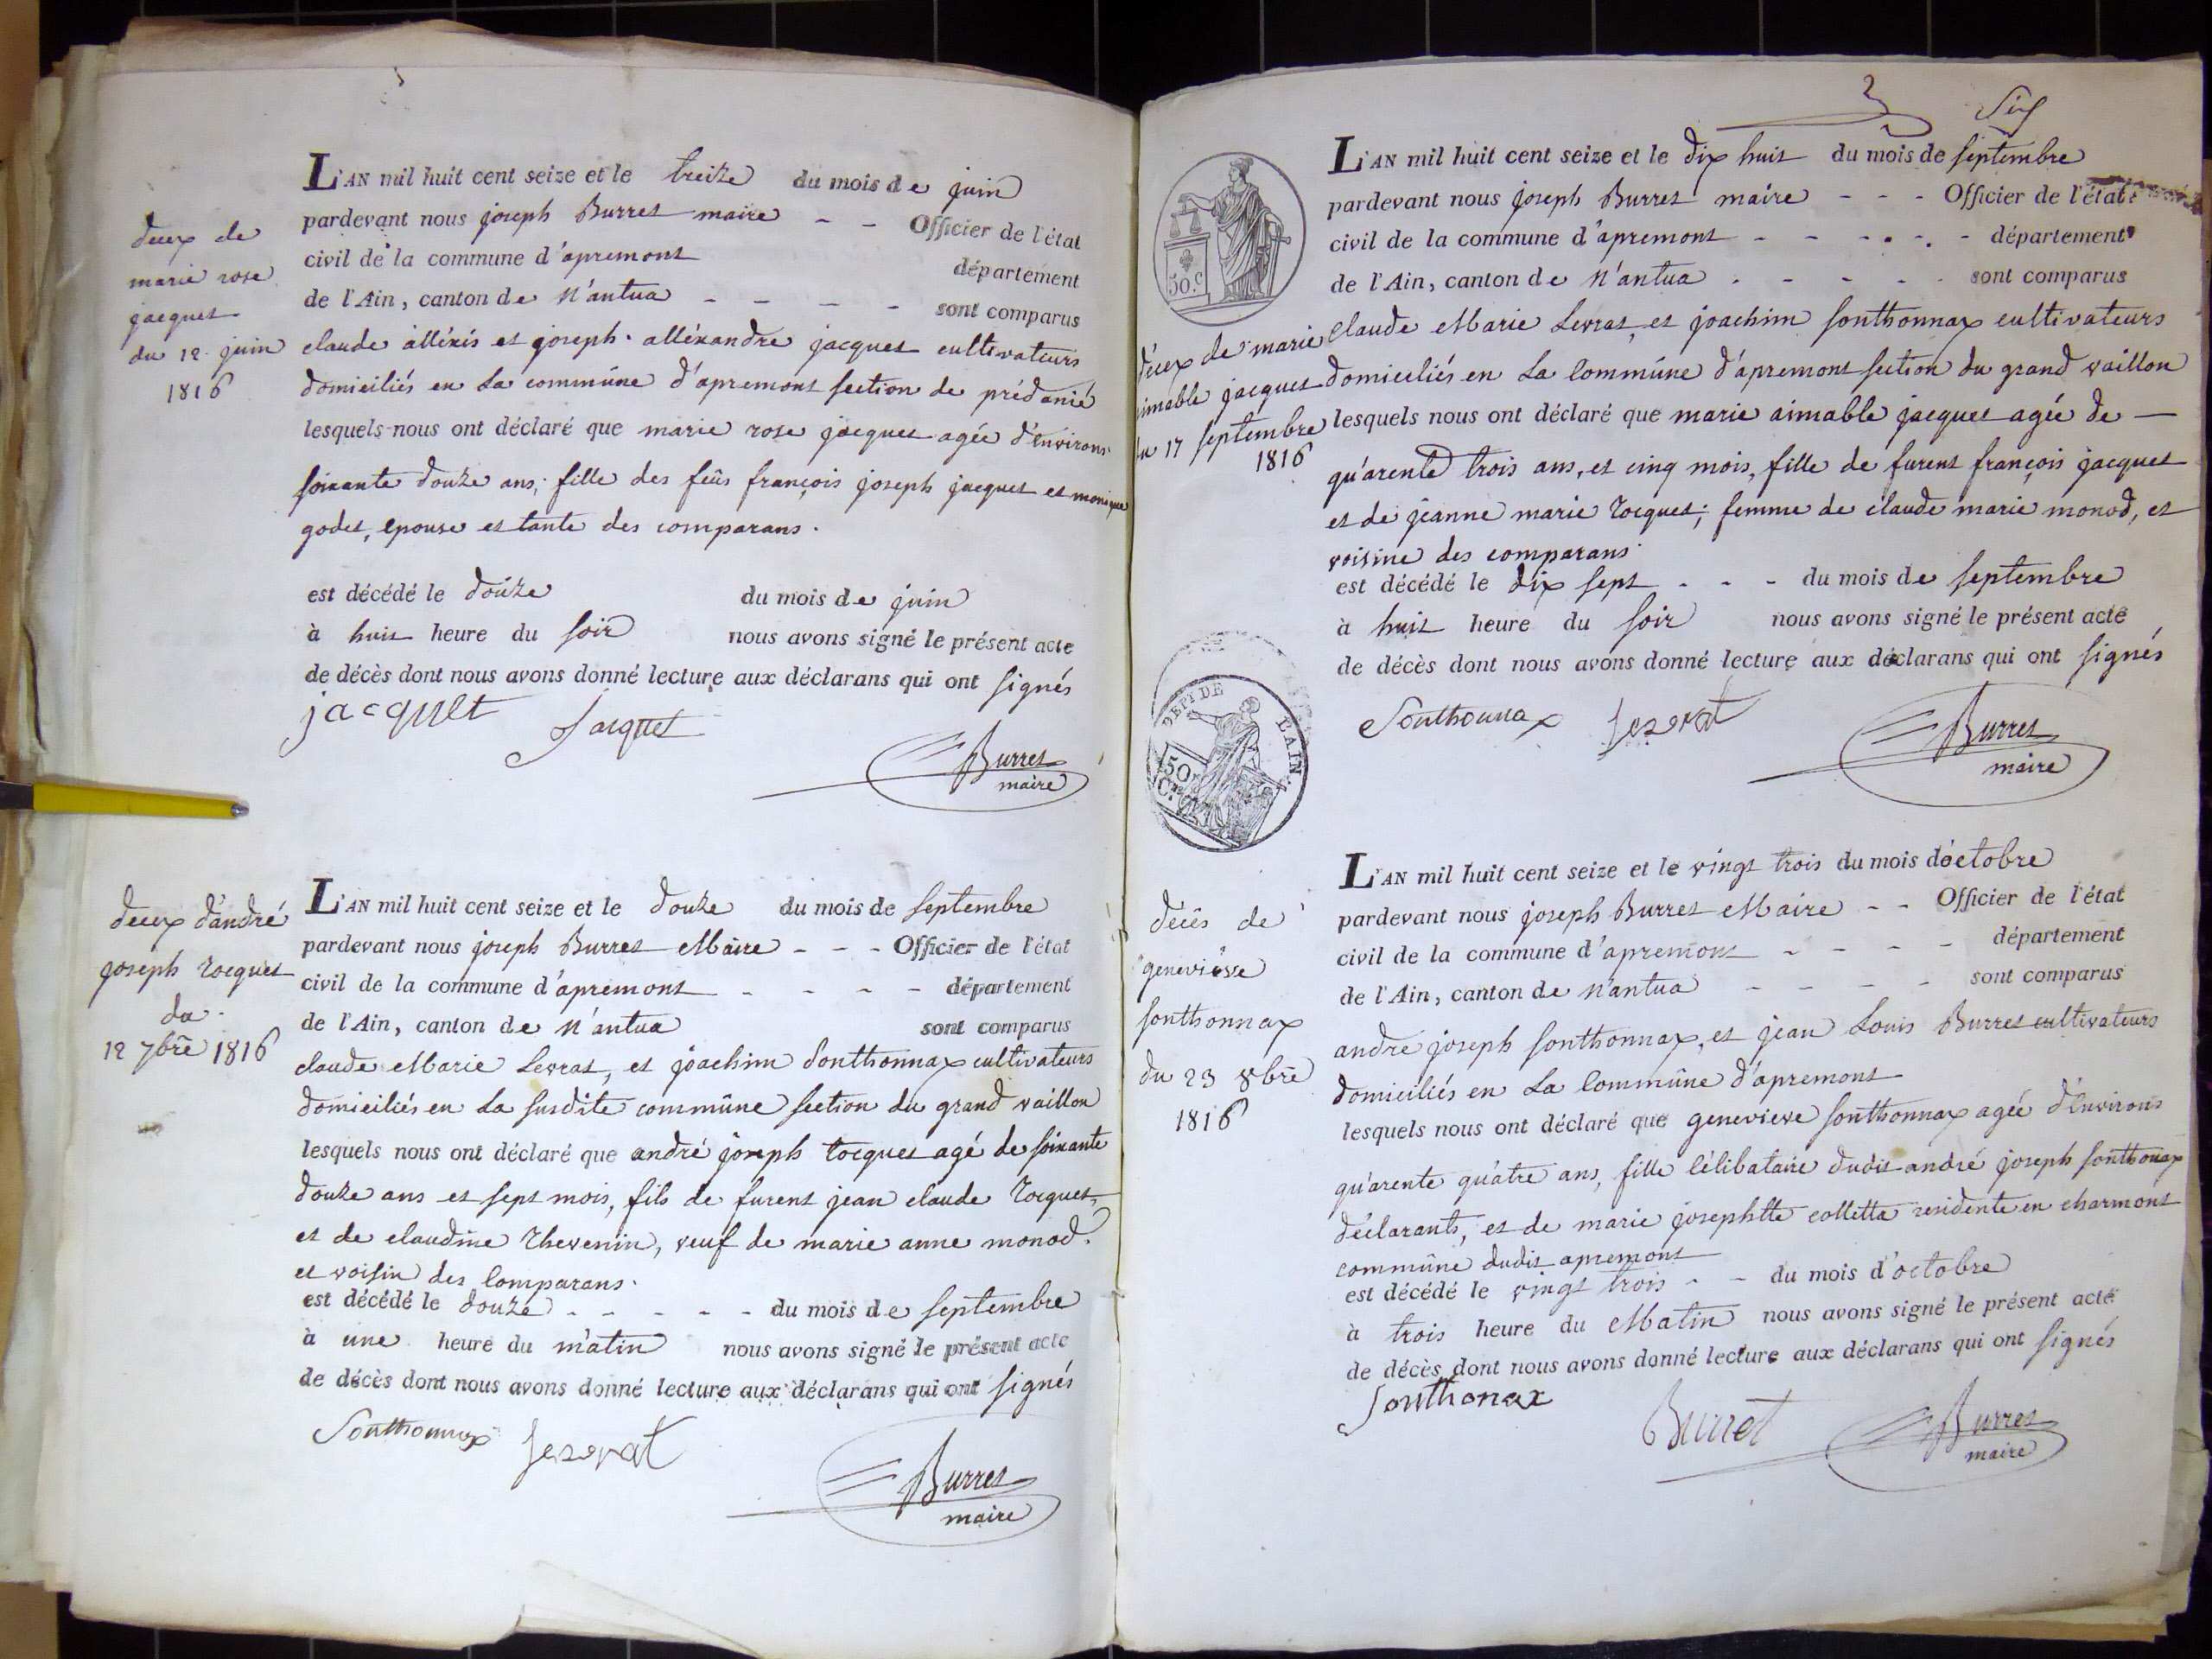 L'AN mil huit cent seize et le treize du mois de juin
pardevant nous joseph Burret maire - - Officier de l'état
civil de la commune d'apremont département
de l'Ain, canton de N'antua - - - - sont comparus
claude alléxis et joseph alléxandre jacquet cultivateurs
domiciliés en La commûne d'apremont section de prédanié
lesquels nous ont déclaré que marie rose jacquet agée d'environs
soixante douze ans, fille des feûs françois joseph jacquet et monique
godet, epouse et tante des comparans.
est décédé le douze du mois de juin
à huit heure du soir nous avons signé le présent acte
de décès dont nous avons donné lecture aux déclarans qui ont signés
jacquet Jacquet
Burret
maire
de
marie rose
jacquet
du 12 juin
1816
L'AN mil huit cent seize et le douze du mois de septembre
pardevant nous joseph Burret Maire - - - Officier de l'état
civil de la commune d'apremont - - - - département
de l'Ain, canton de N'antua sont comparus
claude Marie Levrat, et joachim Sonthonnax cultivateurs
domiciliés en La susdite commûne section du grand vaillon
lesquels nous ont déclaré que andré joseph tocquet agé de soixante
douze ans et sept mois, fils de furent jean claude Tocquet,
et de claudine Thevenin, veuf de marie anne monod.
et voisin des Comparans.
est décédé le douze - - - - - du mois de septembre
à une heure du matin nous avons signé le présent acte
de décès dont nous avons donné lecture aux déclarans qui ont signés
Sonthonnax
Burret
maire
d'andré
joseph Tocquet
du
12 7bre 1816
Six
L'AN mil huit cent seize et le dix huit du mois de septembre
pardevant nous joseph Burret maire - - - Officier de l'état
civil de la commune d'apremont - - - - - - département
de l'Ain, canton de N'antua - - - - - sont comparus
Claude Marie Levrat, et joachim sonthonnax cultivateurs
domiciliés en La Commûne d'apremont section du grand vaillon
lesquels nous ont déclaré que marie aimable jacquet agée de —
qu'arente trois ans, et cinq mois, fille de furent françois jacquet
et de jeanne marie Tocquet; femme de claude marie monod, et
voisine des comparans.
est décédé le dix sept - - - du mois de septembre
à huit heure du soir nous avons signé le présent acte
de décès dont nous avons donné lecture aux déclarans qui ont signés
Sonthonnax
Burret
maire
50.C
de marie
aimable jacquet
du 17 septembre
1816
DEPT DE L'AIN.
50
L'AN mil huit cent seize et le vingt trois du mois d'octobre
pardevant nous joseph Burret Maire - - Officier de l'état
civil de la commune d'apremont - - - - département
de l'Ain, canton de N'antua - - - - sont comparus
andré joseph sonthonnax, et jean Louis Burret cultivateurs
domiciliés en La Commûne d'apremont
lesquels nous ont déclaré que genevieve sonthonnax agée d'Environs
qu'arente quatre ans, fille Célibataire dudit andré joseph sonthonax
déclarants, et de marie josephtte colletta residente en charmont
commûne dudit apremont
est décédé le vingt trois - - du mois d'octobre
à trois heure du Matin nous avons signé le présent acte
de décès dont nous avons donné lecture aux déclarans qui ont signés
Sonthonax
Burret
Burret
maire
décès de
genevièsve
sonthonnax
du 23 8bre
1816